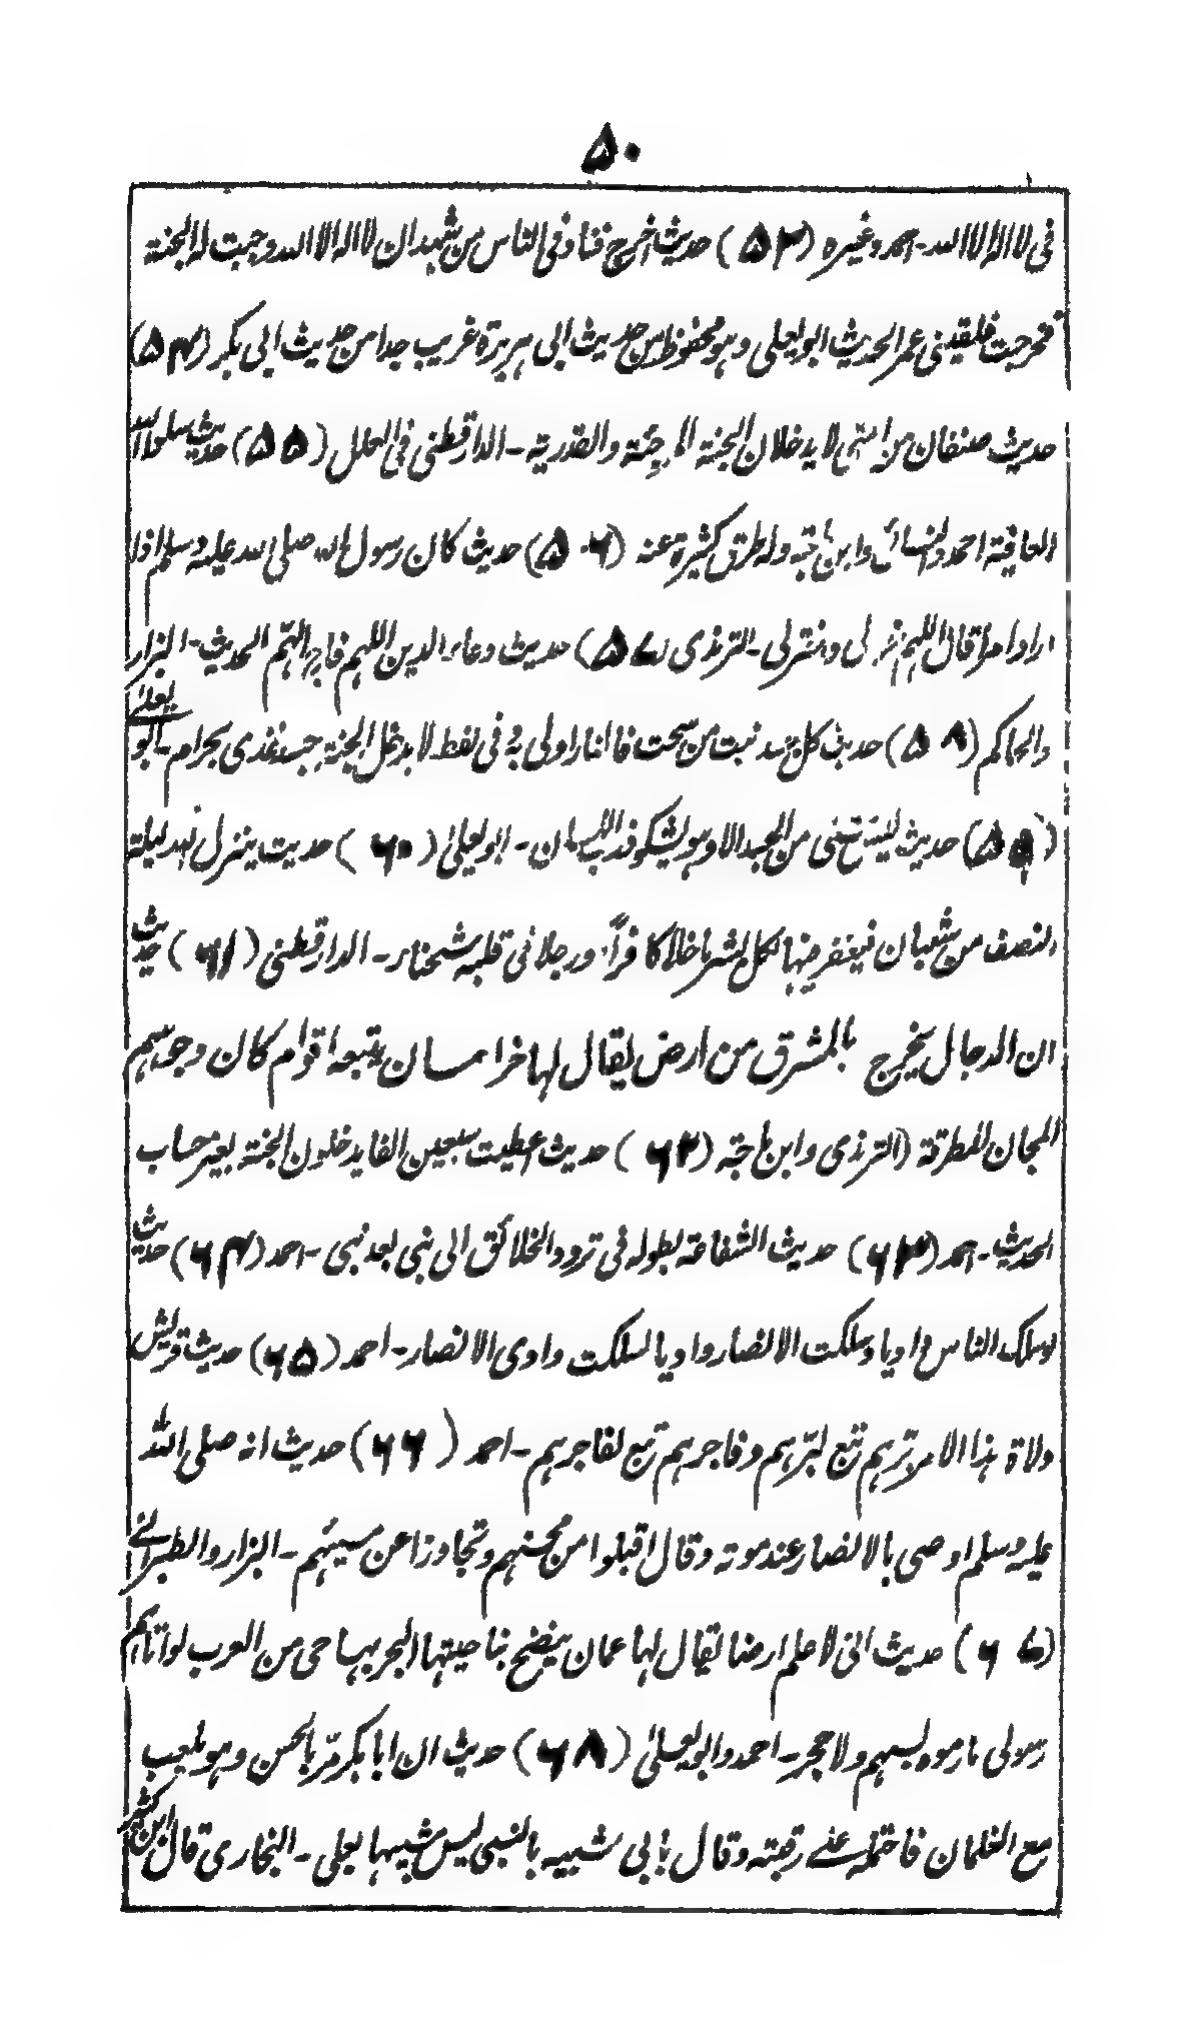 ۵۰
فی لا الہ الا اللہ - احمد وغیرہ (۵۳) حدیث اخرج فناد فی الناس من شہد ان لا الہ الا اللہ وجبت لہ الجنۃ
فخرجت فلقینی عمر الحدیث ابو یعلی وہو محفوظ من حدیث ابی ہریرۃ غریب جدا من حدیث ابی بکر (۵۴)
حدیث صنفان من امتی لا یدخلان الجنۃ المرجئۃ والقدریۃ - الدارقطنی فی العلل (۵۵) حدیث سلوا اللہ
العافیۃ احمد والنسائی وابن ماجۃ ولہ طرق کثیرۃ عنہ (۵۶) حدیث کان رسول اللہ صلی اللہ علیہ وسلم اذا
اراد امرا قال اللہم خر لی واختر لی - الترمذی (۵۷) حدیث دعاء الدین اللہم فارج الہم الحدیث - البزار
والحاکم (۵۸) حدیث کل جسد نبت من سحت فالنار اولی بہ وفی لفظ لا یدخل الجنۃ جسد غذی بحرام - ابو یعلی
(۵۹) حدیث لیس شئ من الجسد الا وہو یشکو ذرب اللسان - ابو یعلی (۶۰) حدیث ینزل اللہ لیلۃ
النصف من شعبان فیغفر فیہا لکل بشر ما خلا کافراً او رجلا فی قلبہ شحناء - الدارقطنی (۶۱) حدیث
ان الدجال یخرج بالمشرق من ارض یقال لہا خراسان یتبعہ اقوام کان وجوہہم
المجان المطرقۃ (الترمذی وابن ماجۃ (۶۲) حدیث اعطیت سبعین الفا یدخلون الجنۃ بغیر حساب
الحدیث - احمد (۶۳) حدیث الشفاعۃ بطولہ فی تردد الخلائق الی نبی بعد نبی - احمد (۶۴) حدیث
لو سلک الناس وادیا وسلکت الانصار وادیا لسلکت وادی الانصار - احمد (۶۵) حدیث قریش
ولاۃ ہذا الامر برہم تبع لبرہم وفاجرہم تبع لفاجرہم - احمد (۶۶) حدیث انہ صلی اللہ
علیہ وسلم اوصی بالانصار عند موتہ وقال اقبلوا من محسنہم وتجاوزا عن مسیئہم - البزار والطبرانی
(۶۷) حدیث انی لاعلم ارضا یقال لہا عمان ینضح بناحیتہا البحر بہا حی من العرب لو اتاہم
رسولی ما رموہ بسہم ولا حجر - احمد وابو یعلی (۶۸) حدیث ان ابا بکر مرّ بالحسن وہو یلعب
مع الغلمان فاحتملہ علی رقبتہ وقال بابی شبیہ بالنبی لیس شبیہا بعلی - البخاری قال ابن کثیر